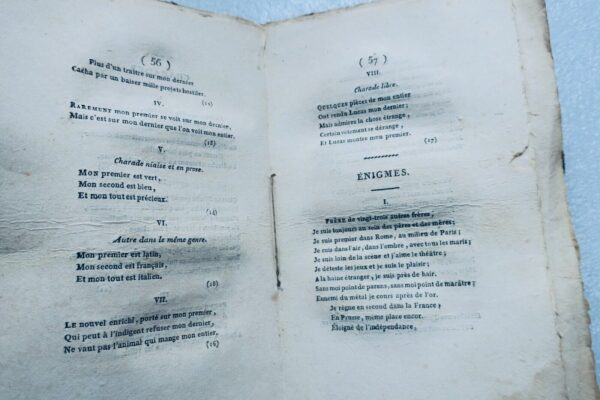 ( 56 )
Plus d'un traître sur mon dernier
Cacha par un baiser mille projets hostiles.
IV. (12)
RAREMENT mon premier se voit sur mon dernier,
Mais c'est sur mon dernier que l'on voit mon entier.
(13)
V.
Charade niaise et en prose.
MON premier est vert,
Mon second est bleu,
Et mon tout est précieux.
(14)
VI.
Autre dans le même genre.
MON premier est latin,
Mon second est français,
Et mon tout est italien.
VII.
LE nouvel enrichi, porté sur mon premier,
Qui peut à l'indigent refuser mon dernier,
Ne vaut pas l'animal qui mange mon entier.
(16)
( 57 )
VIII.
Charade libre.
QUELQUES pièces de mon entier
Ont rendu Lucas mon dernier;
Mais admirez la chose étrange,
Certain vêtement se dérange,
Et Lucas montre mon premier.
(17)
ÉNIGMES.
I.
FRÈRE de vingt-trois autres frères,
Je suis toujours au sein des pères et des mères;
Je suis premier dans Rome, au milieu de Paris;
Je suis dans l'air, dans l'ombre, avec tous les maris;
Je suis loin de la scène et j'aime le théâtre;
Je déteste les jeux et je suis le plaisir;
A la haine étranger, je suis près de haïr.
Sans moi point de parens, sans moi point de marâtre;
Ennemi du métal je cours après de l'or.
Je règne en second dans la France;
En Prusse, même place encor.
Éloigné de l'indépendance,